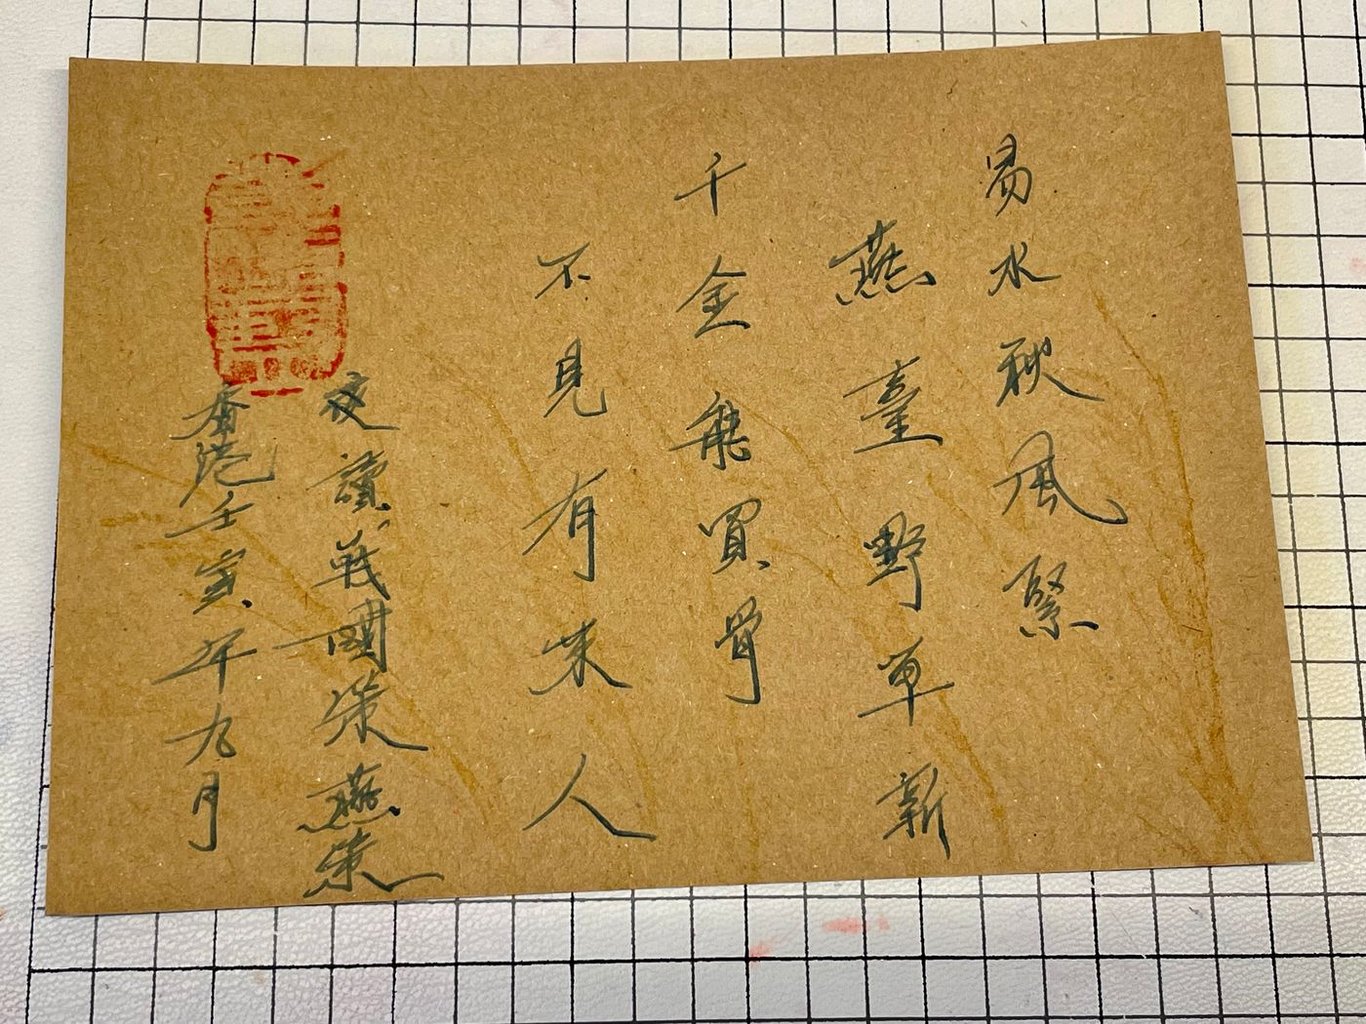 易水秋風緊
燕臺野草新
千金無買骨
不見有来人
夜讀戰國策燕策
香港壬寅年九月